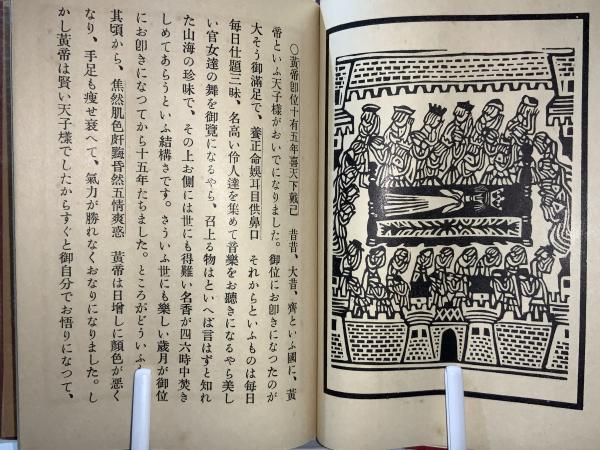 〇黃帝卽位十有五年喜天下戴己　昔昔、大昔、齊といふ國に、黃
帝といふ天子樣がおいでになりました。御位にお卽きになつたのが
大そう御滿足で、養正命娛耳目供鼻口　それからといふものは每日
每日仕題三昧、名高い伶人達を集めて音樂をお聽きになるやら美し
い官女達の舞を御覽になるやら、召上る物はといへば言はずと知れ
た山海の珍味で、その上お側には世にも得難い名香が四六時中焚き
しめてあらうといふ結構さです。さういふ世にも樂しい歲月が御位
にお卽きになつてから十五年たちました。ところがどういふ
其頃から、焦然肌色皯黣昏然五情爽惑　黃帝は日增しに顏色が惡く
なり、手足も瘦せ衰へて、氣力が勝れなくおなりになりました。し
かし黃帝は賢い天子樣でしたからすぐと御自分でお悟りになつて、